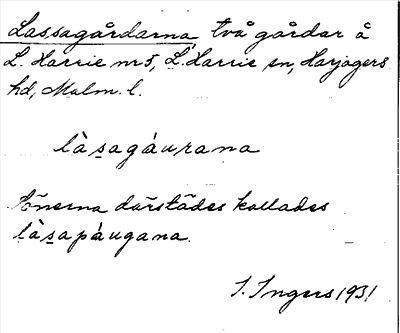 Lassagårdarna, två gårdar å
L. Harrie nr 5, L. Harrie sn, Harjagers
hd, Malm. l.
làsagáurana
Änerna därstädes kallades
làsapáugana.
I. Ingers 1931